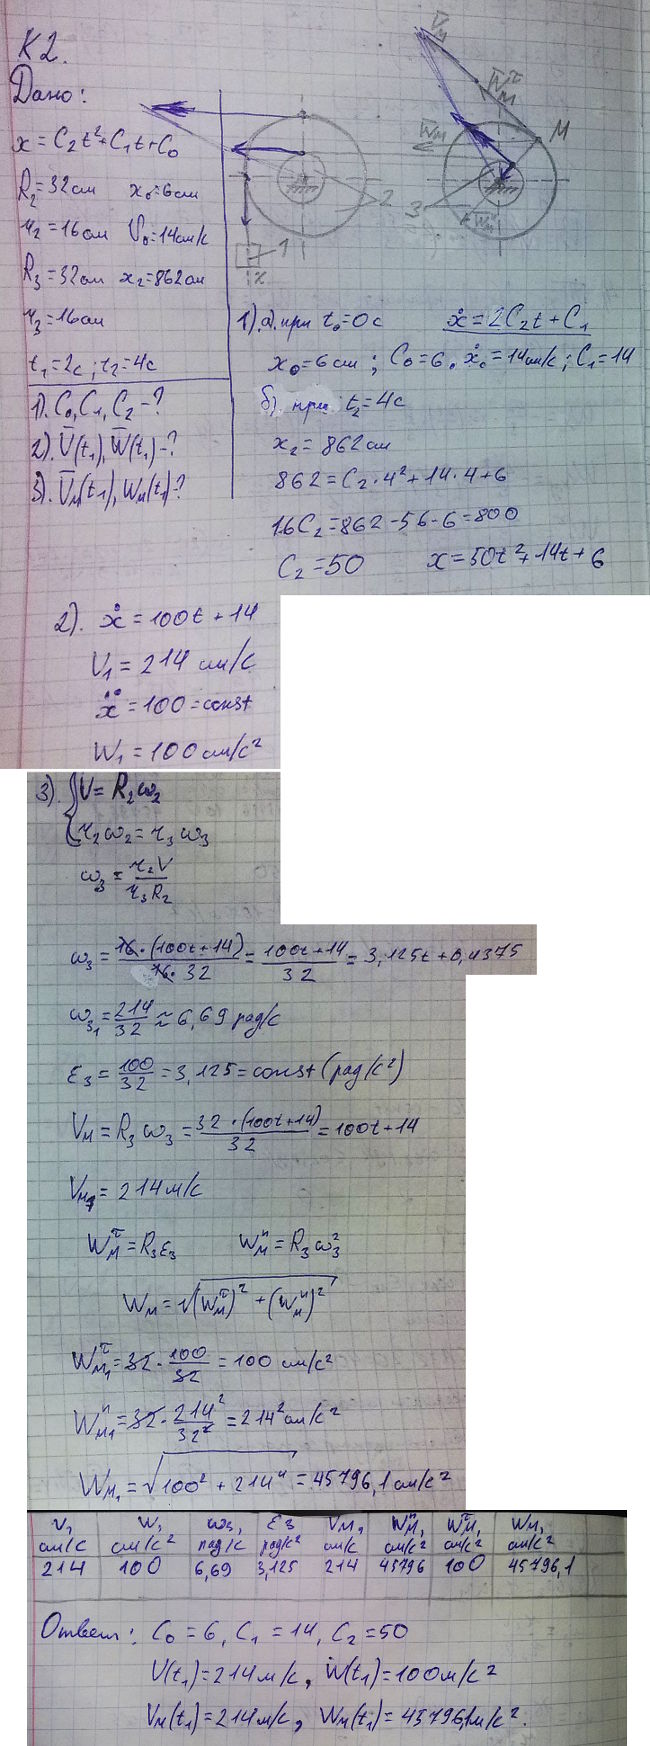 К2.
Дано:
x = C₂t² + C₁t + C₀
R₂ = 32 см x₀ = 6 см
r₂ = 16 см V₀ = 14 см/с
R₃ = 32 см x₂ = 862 см
r₃ = 16 см
t₁ = 2 с; t₂ = 4 с
1). C₀, C₁, C₂ - ?
2). V̅(t₁), W̅(t₁) - ?
3). V̅м(t₁), Wм(t₁) - ?
1
2
x
V̅м
W̅м^τ
W̅м
M
3
W̅м^n
1). а) при t₀ = 0 с ẋ = 2C₂t + C₁
x₀ = 6 см; C₀ = 6. ẋ₀ = 14 см/с; C₁ = 14
б) при t₂ = 4 с
x₂ = 862 см
862 = C₂·4² + 14·4 + 6
16C₂ = 862 - 56 - 6 = 800
C₂ = 50 x = 50t² + 14t + 6
2). ẋ = 100t + 14
V₁ = 214 см/с
ẍ = 100 = const
W₁ = 100 см/с²
3). { V = R₂ω₂
r₂ω₂ = r₃ω₃
ω₃ = r₂V / r₃R₂
ω₃ = 16·(100t+14) / 16·32 = 100t+14 / 32 = 3,125t + 0,4375
ω₃₁ = 214/32 ≈ 6,69 рад/с
ε₃ = 100/32 = 3,125 = const (рад/с²)
Vм = R₃ω₃ = 32·(100t+14) / 32 = 100t + 14
Vм₁ = 214 м/с
Wм^τ = R₃ε₃ Wм^n = R₃ω₃²
Wм = √((Wм^τ)² + (Wм^n)²)
Wм₁^τ = 32·100/32 = 100 см/с²
Wм₁^n = 32·214²/32² = 214² см/с²
Wм₁ = √(100² + 214⁴) = 45796,1 см/с²
V₁ W₁ ω₃₁ ε₃ Vм₁ Wм₁^n Wм₁^τ Wм₁
см/с см/с² рад/с рад/с² см/с см/с² см/с² см/с²
214 100 6,69 3,125 214 45796 100 45796,1
Ответ: C₀ = 6, C₁ = 14, C₂ = 50
V(t₁) = 214 м/с, W(t₁) = 100 м/с²
Vм(t₁) = 214 м/с, Wм(t₁) = 45796,1 м/с².